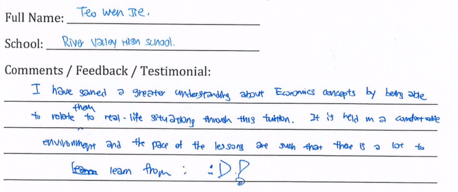 Full Name: Teo Wen Jie.
School: River Valley High School.
Comments / Feedback / Testimonial:
I have gained a greater understanding about Economics concepts by being able
them
to relate to real-life situations through this tuition. It is held in a comfortable
environment and the pace of the lessons are such that there is a lot to
learn from : :D!